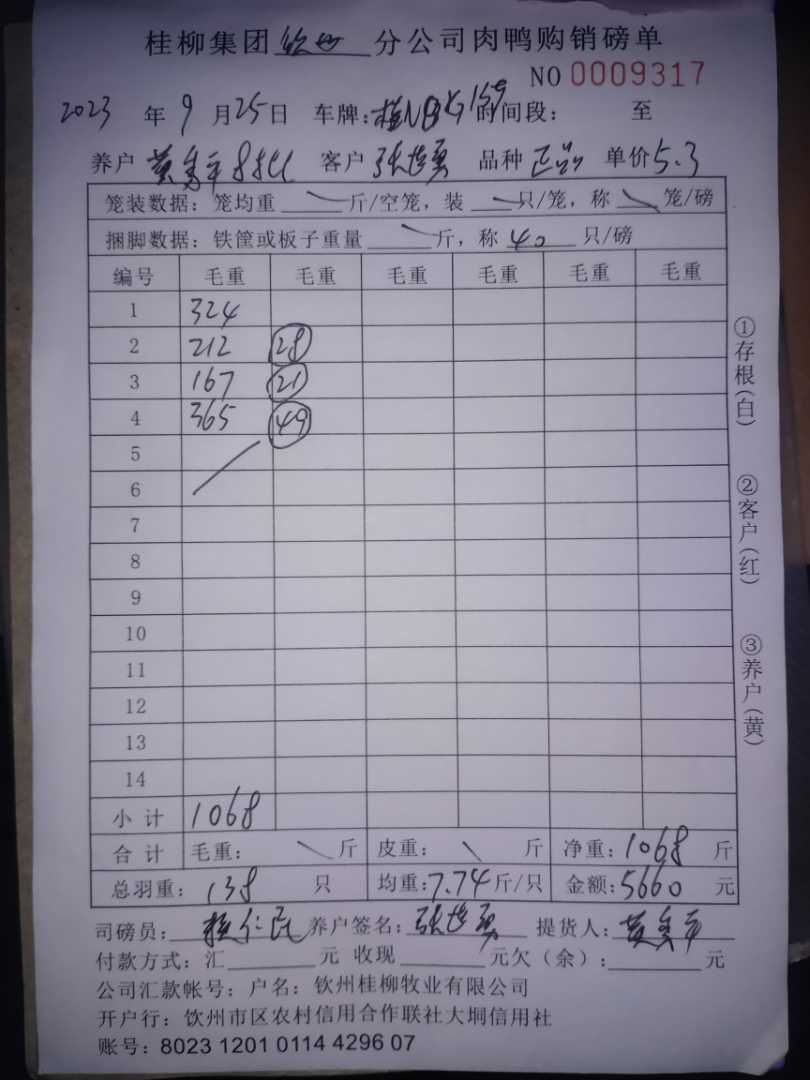 桂柳集团 钦州 分公司肉鸭购销磅单
NO 0009317
2023 年 9 月 25 日 车牌: 时间段: 至
养户 客户 张世勇 品种 正品 单价 5.3
笼装数据: 笼均重 斤/空笼, 装 只/笼, 称 笼/磅
捆脚数据: 铁筐或板子重量 斤, 称 40 只/磅
编号 毛重 毛重 毛重 毛重 毛重 毛重
1 324
2 212 28
3 167 21
4 365 49
5
6
7
8
9
10
11
12
13
14
小计 1068
合计 毛重: 斤 皮重: 斤 净重: 1068 斤
总羽重: 138 只 均重: 7.74 斤/只 金额: 5660 元
司磅员: 养户签名: 张世勇 提货人:
付款方式: 汇 元 收现 元欠(余): 元
公司汇款帐号: 户名: 钦州桂柳牧业有限公司
开户行: 钦州市区农村信用合作联社大垌信用社
账号: 8023 1201 0114 4296 07
①存根(白)
②客户(红)
③养户(黄)